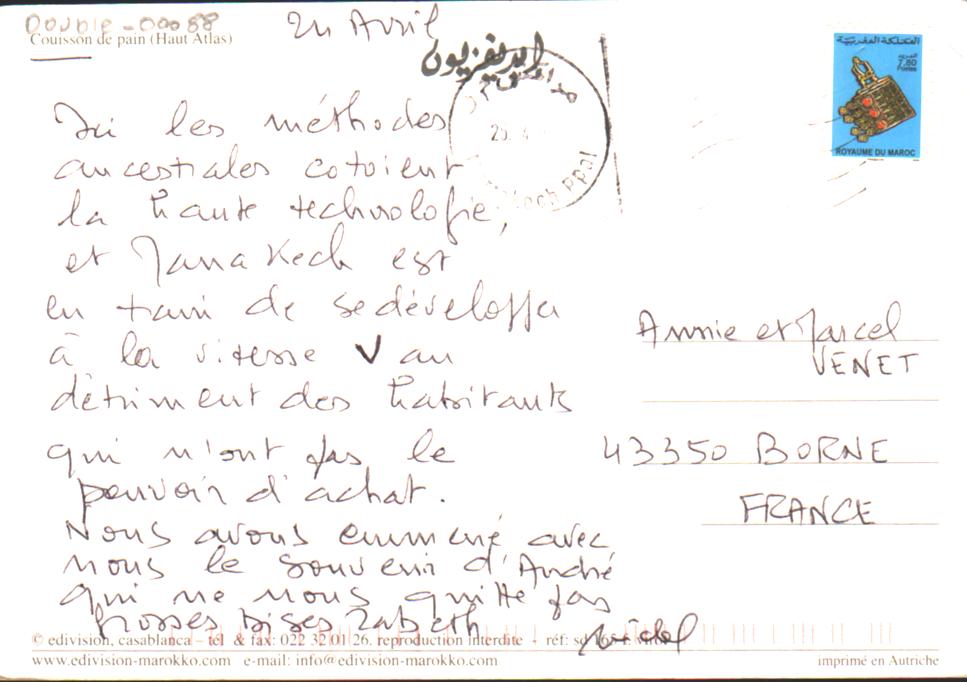 Double - 00088
Couisson de pain (Haut Atlas)
24 Avril
المملكة المغربية
7,80
Postes
ROYAUME DU MAROC
25. 4
ppal
Ici les méthodes
ancestrales cotoient
la haute technologie,
et Marrakech est
en train de se développer
à la vitesse V au
détriment des habitants
qui n'ont pas le
pouvoir d'achat.
Nous avons emmené avec
nous le souvenir d'André
qui ne nous quitte pas
Grosses bises Zabeth
Michel
Annie et Marcel
VENET
43350 BORNE
FRANCE
© edivision, casablanca – tél & fax: 022 32 01 26. reproduction interdite - réf: sd
www.edivision-marokko.com e-mail: info@edivision-marokko.com
imprimé en Autriche